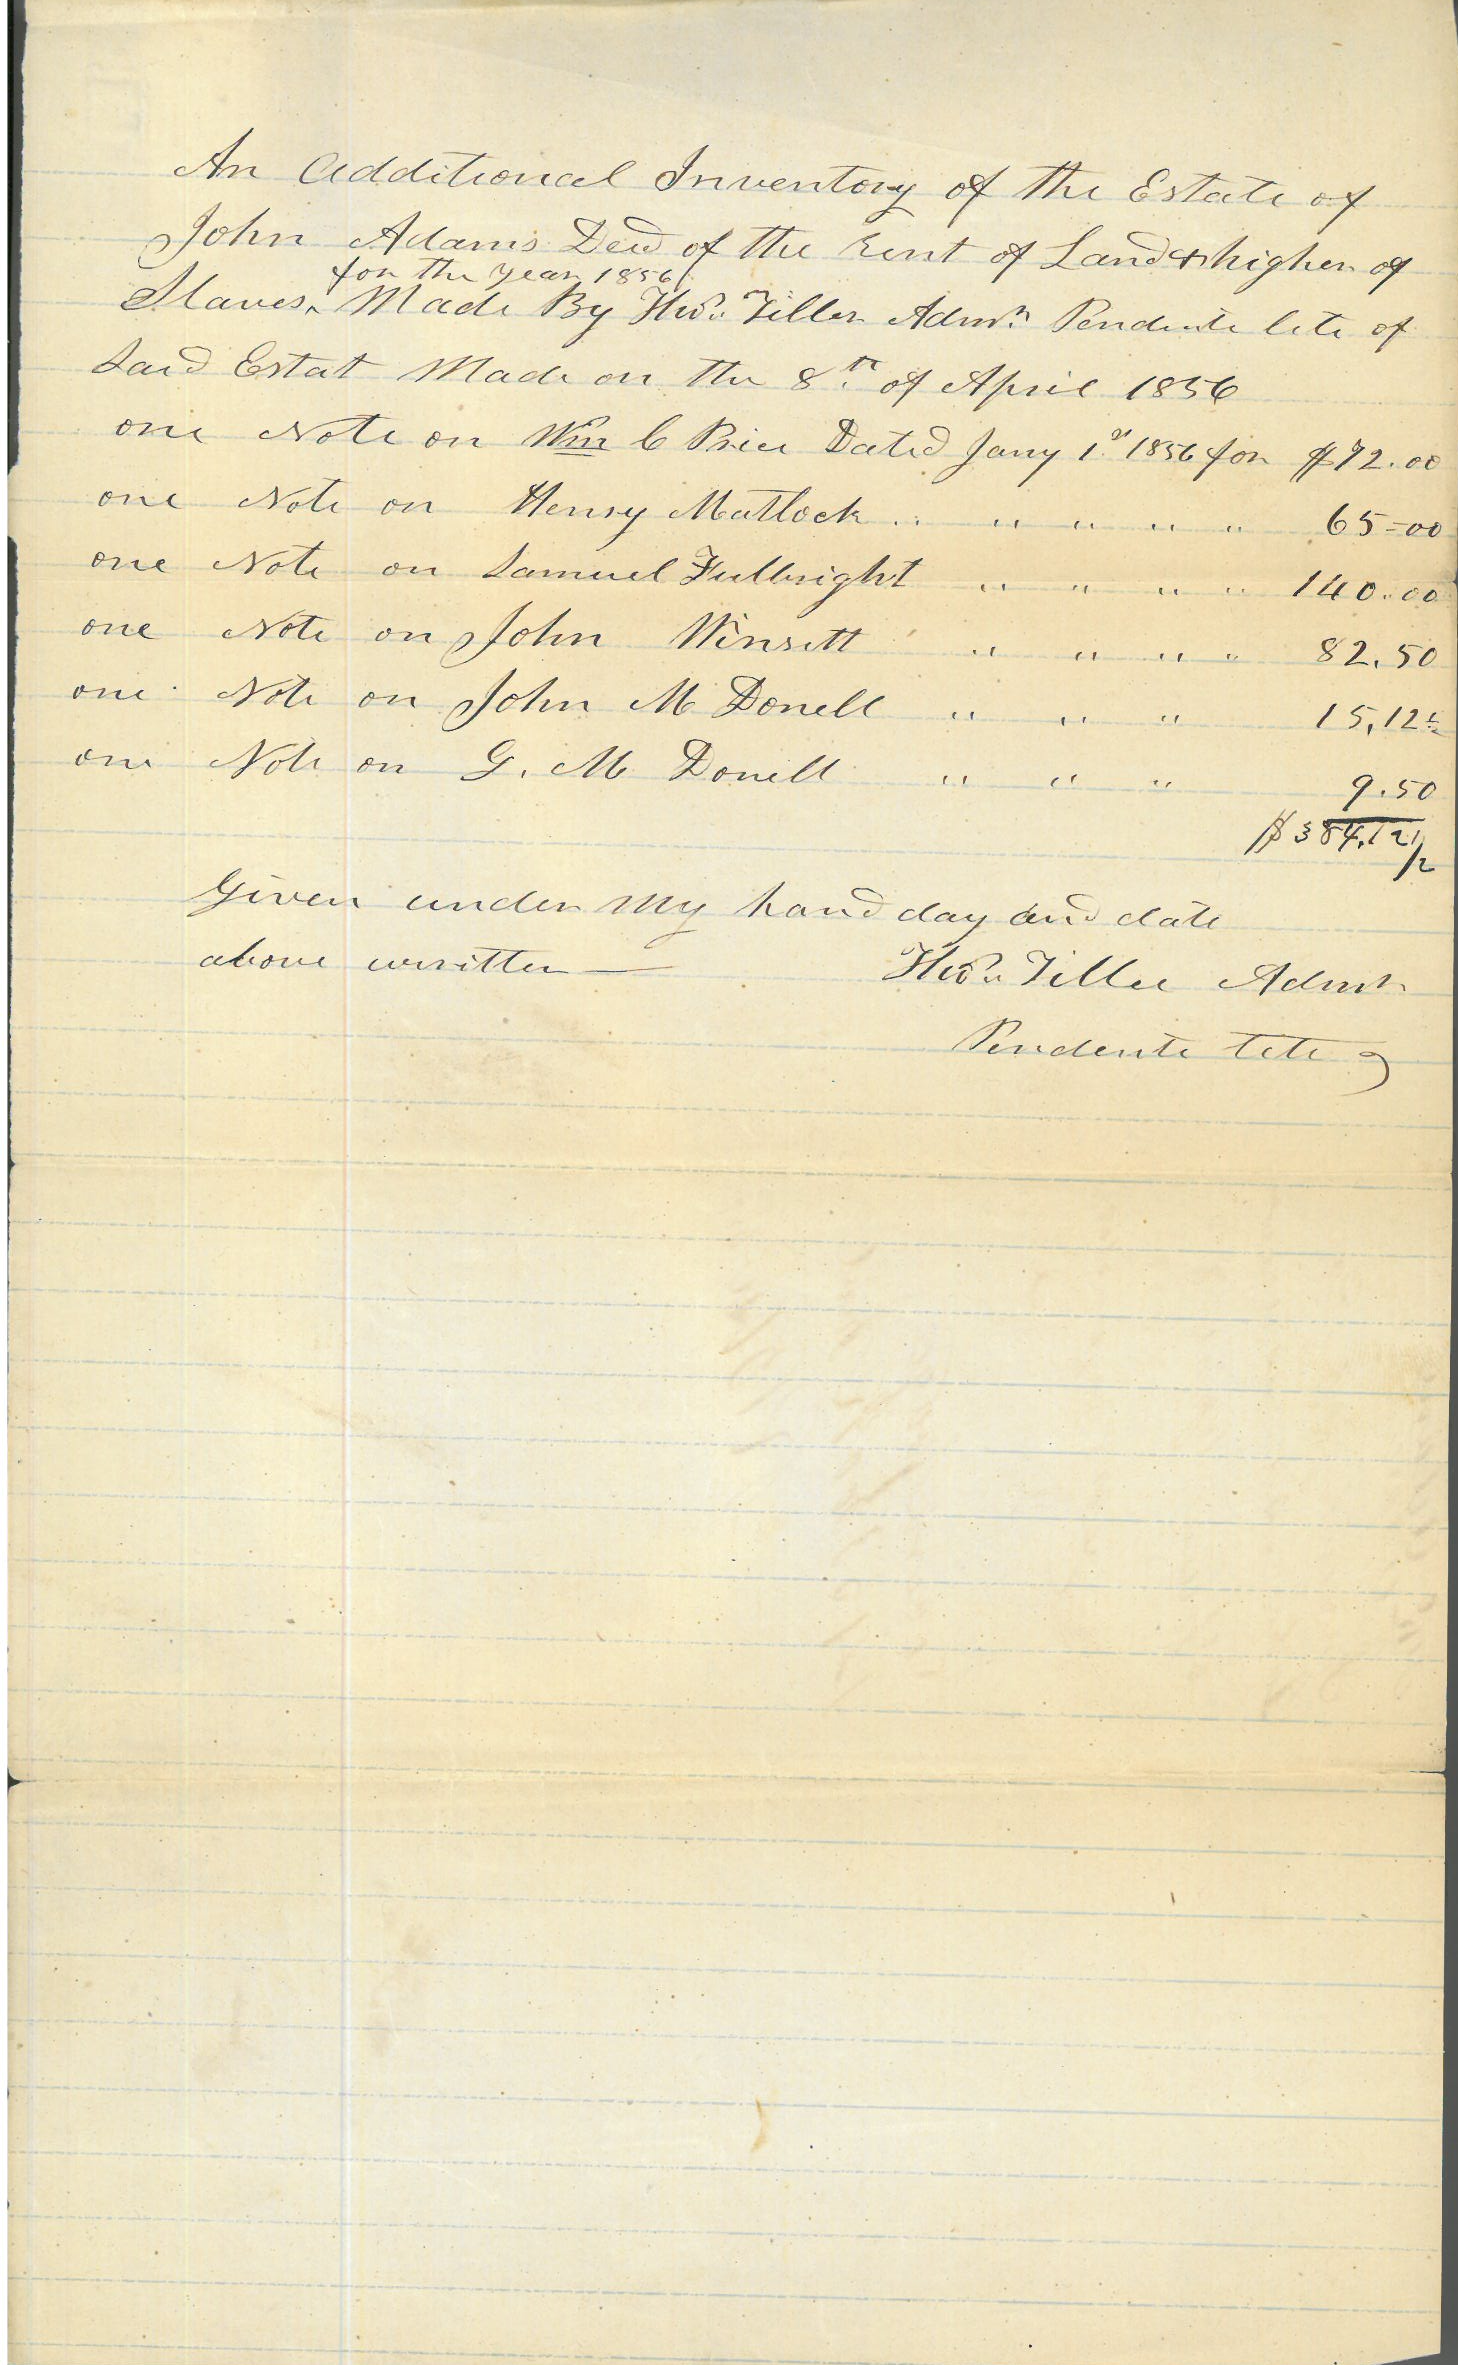 An additional Inventory of the Estate of
John Adams Decd of the rent of Land & higher of
for the year 1856
Slaves ^ Made By Theo. Tiller Admr. Pendente lete of
Said Estat Made on the 8th of April 1856
one Note on Wm C Price Dated Jany 1st 1856 for $72.00
one Note on Henry Matlock " " " " " 65=00
one Note on Samuel Fulbright " " " " 140.00
one Note on John Winsett " " " " 82.50
one Note on John M Donell " " " 15,12½
one Note on G. M Donell " " " 9.50
$384,12 1/2
Given under my hand day and date
above written — Tiller Admr
Pendente lete